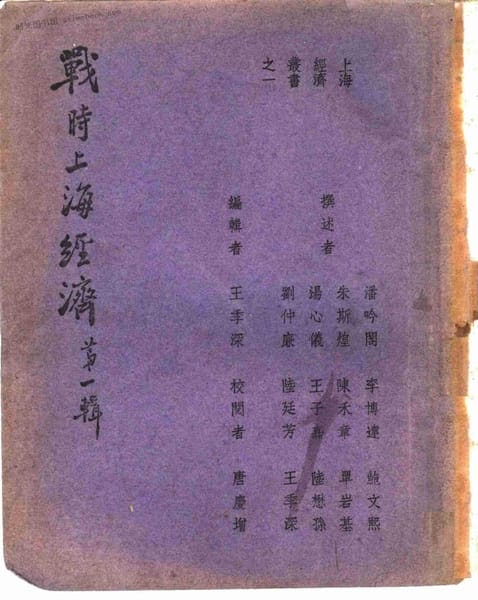 上海
經濟
叢書
之一
撰述者
潘吟閣 李博達 鮑文熙
朱斯煌 陳禾章 單岩基
湯心儀 王子嘉 陸懋孫
劉仲廉 陸廷芳 王季深
編輯者 王季深 校閱者 唐慶增
戰時上海經濟 第一輯